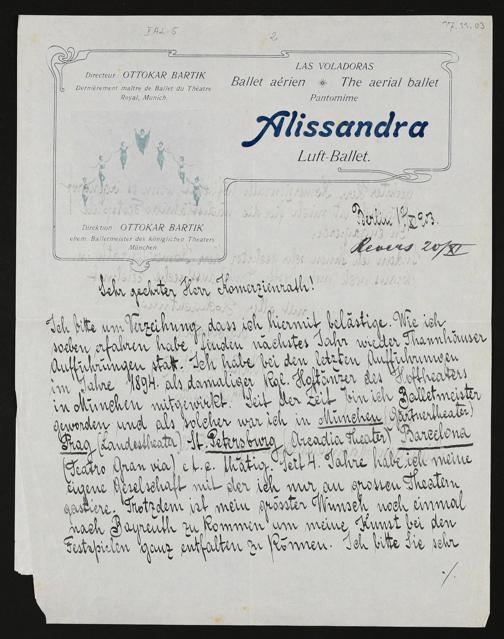 IAL-5
2
17.11.03
Directeur OTTOKAR BARTIK
Dernièrement maître de Ballet du Théatre
Royal, Munich.
LAS VOLADORAS
Ballet aérien The aerial ballet
Pantomime
Alissandra
Luft-Ballet.
Direktion OTTOKAR BARTIK
ehem. Balletmeister des königlichen Theaters
München
Berlin 17/XI 903.
20/XI
Sehr geehrter Herr Komerzienrath!
Ich bitte um Verzeihung dass ich hiermit belästige. Wie ich
soeben erfahren habe finden nächstes Jahr wieder Thannhäuser
Aufführungen statt. Ich habe bei den letzten Aufführungen
im Jahre 1894. als damaliger Kgl. Hoftänzer des Hoftheaters
in München mitgewirkt. Seit der Zeit bin ich Balletmeister
geworden und als solcher war ich in München (Gärtnertheater)
Prag (Landestheater) St Petersburg (Arcadia Theater) Barcelona
(Teatro Gran via) e.t.c. thätig. Seit 4. Jahre habe ich meine
eigene Geselschaft mit der ich nur an grossen Theatern
gastiere. Trotzdem ist mein grösster Wunsch noch einmal
nach Bayreuth zu kommen um meine Kunst bei den
Festspielen ganz entfalten zu können. Ich bitte Sie sehr
./.